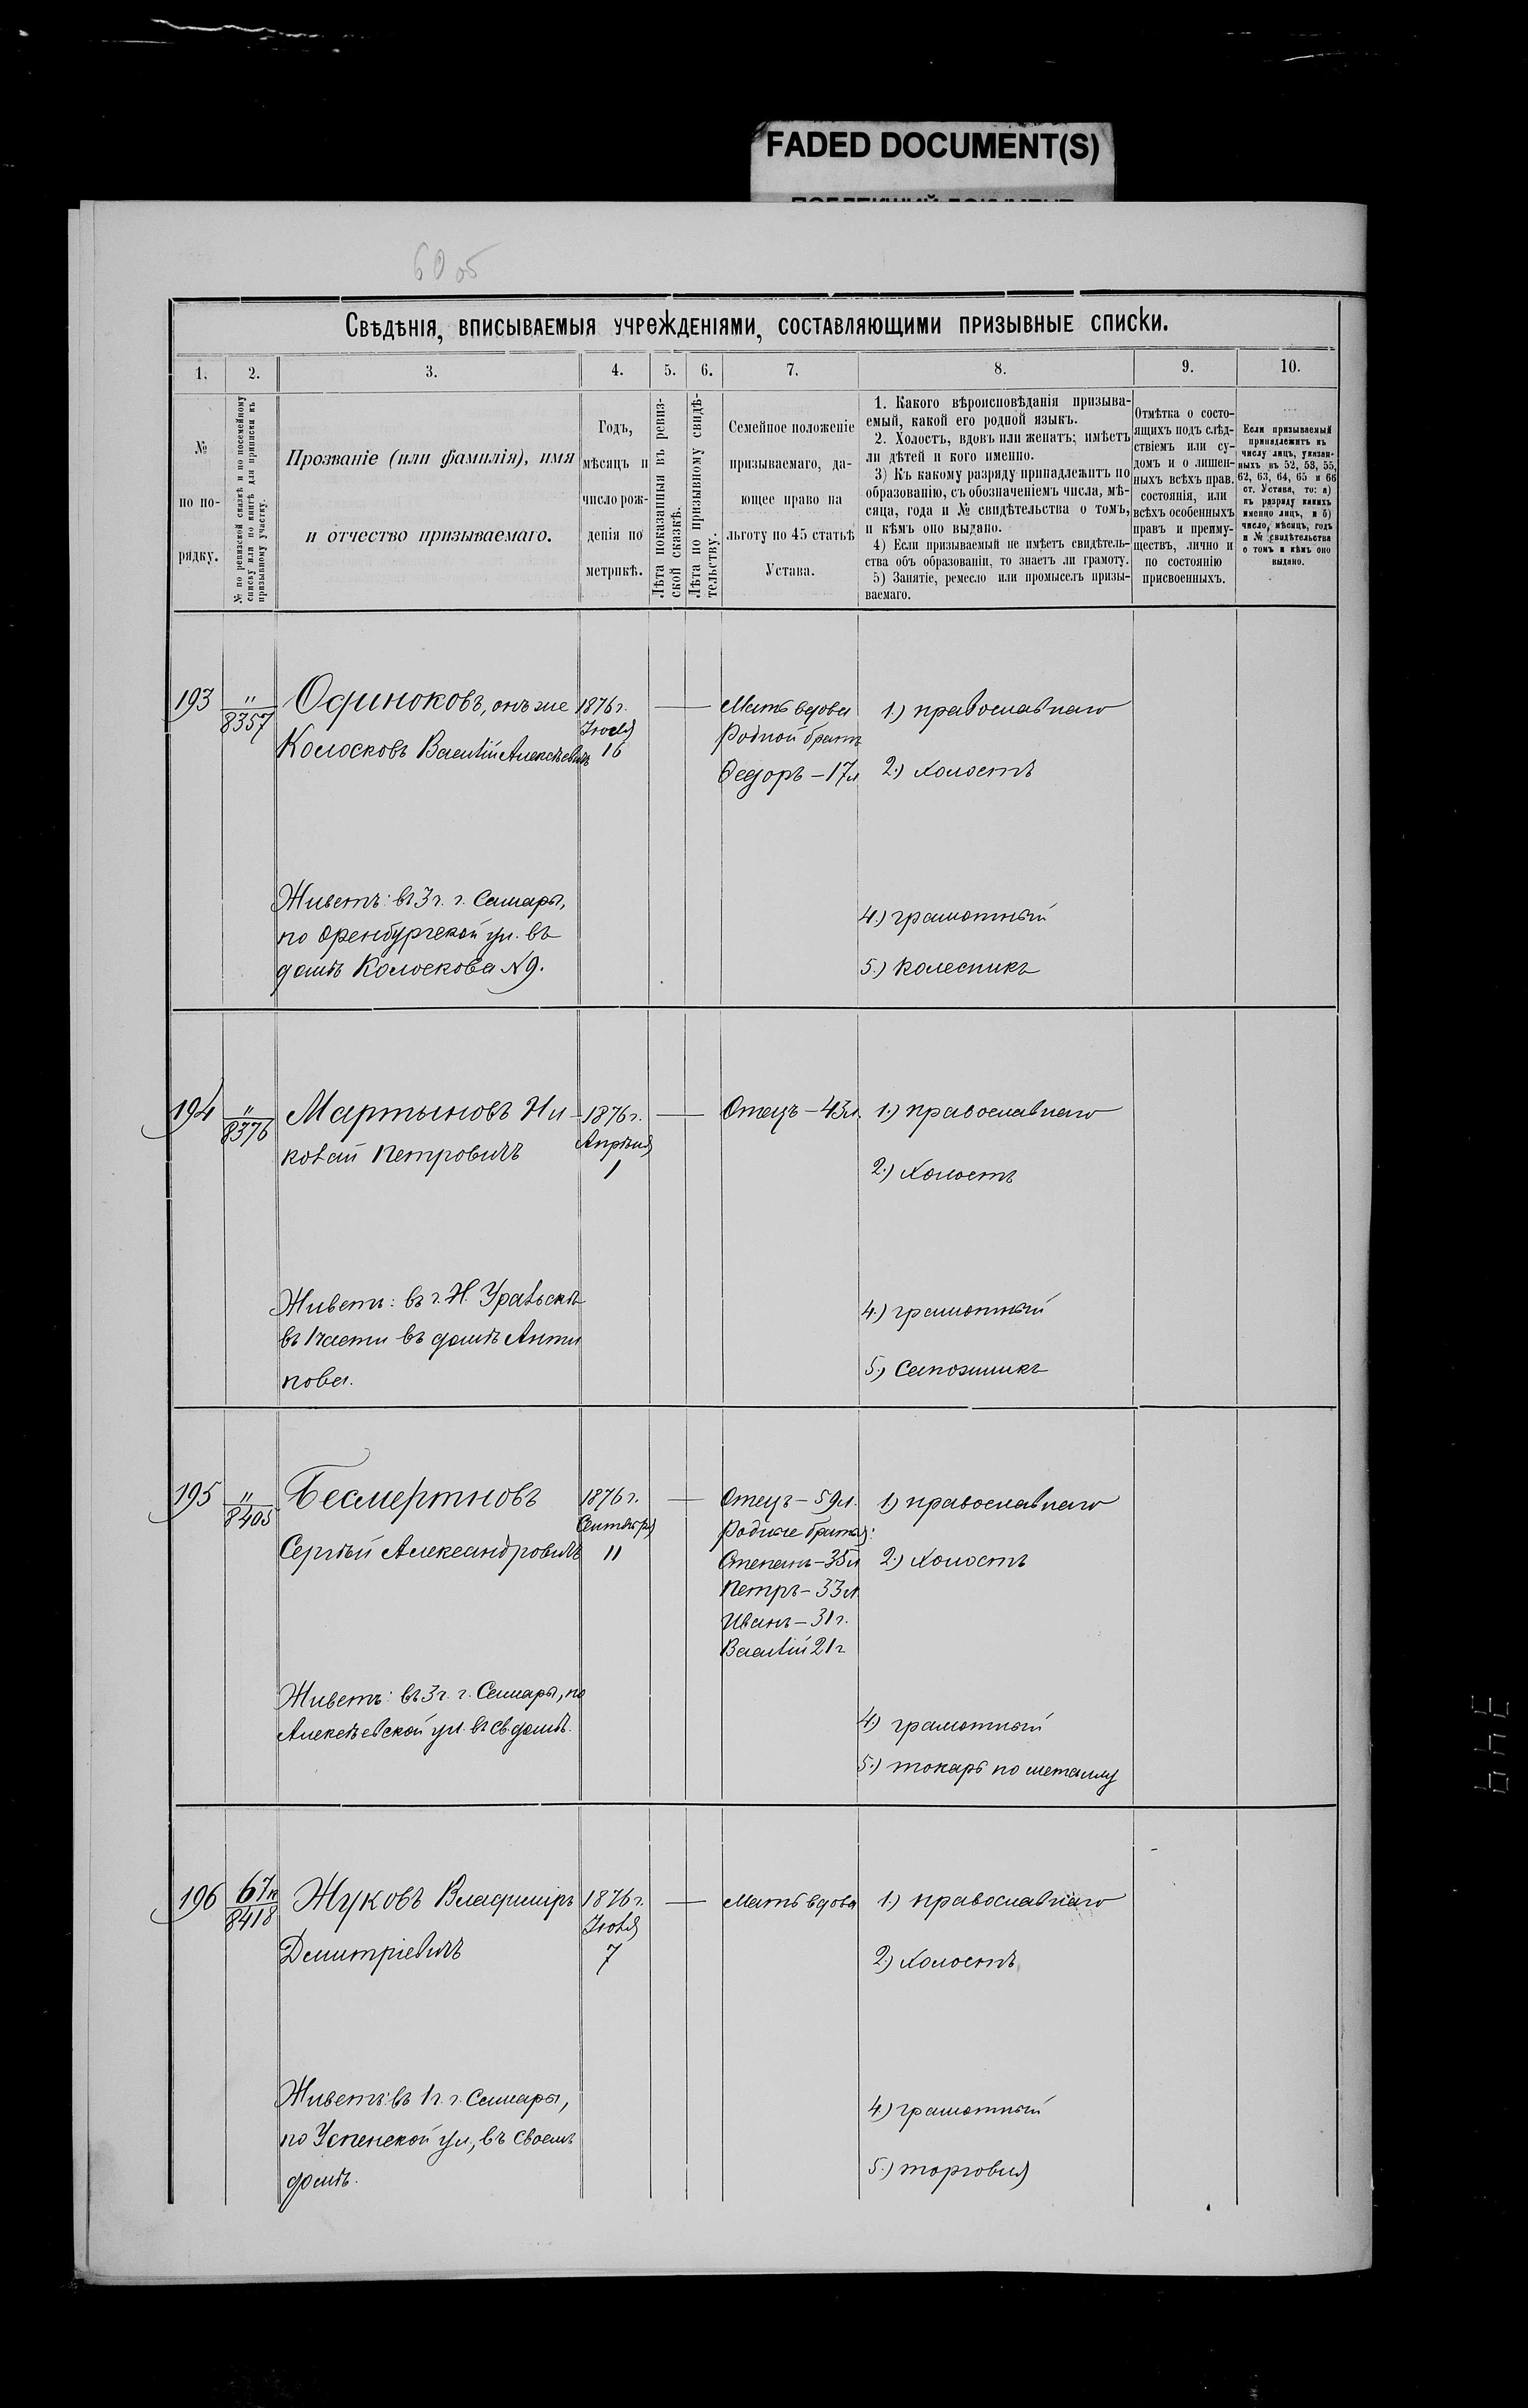 FADED DOCUMENT(S)
60об
Свѣдѣнія, вписываемыя учрежденіями, составляющими призывные списки.
1. 2. 3. 4. 5. 6. 7. 8. 9. 10.
№
по по-
рядку.
№ по ревизской сказкѣ и по посемейному
списку или по книгѣ для приписки къ
призывному участку.
Прозваніе (или фамилія), имя
и отчество призываемаго.
Годъ,
мѣсяцъ и
число рож-
денія по
метрикѣ.
Лѣта показанныя въ ревиз-
ской сказкѣ.
Лѣта по призывному свидѣ-
тельству.
Семейное положеніе
призываемаго, да-
ющее право на
льготу по 45 статьѣ
Устава.
1. Какого вѣроисповѣданія призыва-
емый, какой его родной языкъ.
2. Холостъ, вдовъ или женатъ; имѣетъ
ли дѣтей и кого именно.
3) Къ какому разряду принадлежитъ по
образованію, съ обозначеніемъ числа, мѣ-
сяца, года и № свидѣтельства о томъ,
и кѣмъ оно выдано.
4) Если призываемый не имѣетъ свидѣтель-
ства объ образованіи, то знаетъ ли грамоту.
5) Занятіе, ремесло или промыселъ призы-
ваемаго.
Отмѣтка о состо-
ящихъ подъ слѣд-
ствіемъ или су-
домъ и о лишен-
ныхъ всѣхъ прав.
состоянія, или
всѣхъ особенныхъ
правъ и преиму-
ществъ, лично и
по состоянію
присвоенныхъ.
Если призываемый
принадлежитъ къ
числу лицъ, указан-
ныхъ въ 52, 53, 55,
62, 63, 64, 65 и 66
ст. Устава, то: а)
къ разряду какихъ
именно лицъ, и б)
число, мѣсяцъ, годъ
и № свидѣтельства
о томъ и кѣмъ оно
выдано.
193 " Одиноковъ, онъ же 1876 г. — Мать вдова 1.) православнаго
8357 Іюля Родной братъ
Колосковъ Василій Алексѣевичъ 16
Ѳедоръ – 17 л 2.) холостъ
Живетъ: въ 3 ч. г. Самары,
по Оренбургской ул. въ 4.) грамотный
домѣ Колоскова № 9. 5.) колесникъ
194 " Мартыновъ Ни- 1876 г. — Отецъ – 43 л. 1.) православнаго
8376 Апрѣля
колай Петровичъ 1 2.) холостъ
Живетъ: въ г. Н. Уральскѣ 4.) грамотный
въ 1 части въ домѣ Анти
пова. 5.) Сапожникъ
195 " Бесмертновъ 1876 г. — Отецъ – 59 л. 1.) православнаго
8405 Сентября Родные братья:
Сергѣй Александровичъ 11 Степанъ – 35 л 2.) холостъ
Петръ – 33 л.
Иванъ – 31 г.
Василій 21 г
Живетъ: въ 3 ч. г. Самары, по
Алексѣевской ул. въ св домѣ. 4.) грамотный
5.) токарь по металлу
196 67к Жуковъ Владиміръ 1876 г. — Мать вдова 1.) православнаго
8418 Іюля
Дмитріевичъ 7 2.) холостъ
Живетъ: въ 1 ч. г. Самары,
по Успенской ул, въ своемъ 4.) грамотный
домѣ. 5.) торговля
349